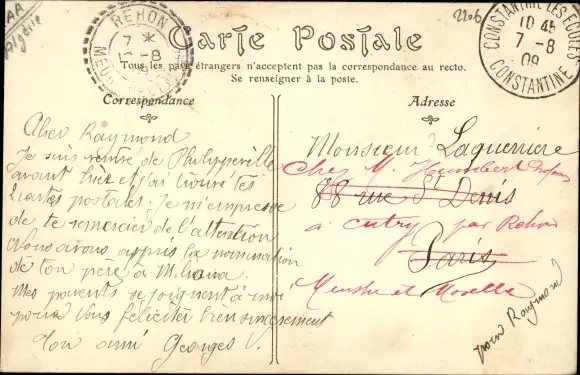 AA
Algérie
2206
REHON
7 * 
-8
09
CONSTANTINE LES ECOLES
10 45
7 -8
09
CONSTANTINE
Carte Postale
Tous les pays étrangers n'acceptent pas la correspondance au recto.
Se renseigner à la poste.
Correspondance
Adresse
Cher Raymond
Je suis rentré de Philippeville
avant hier et j'ai trouvé tes
cartes postales. Je m'empresse
de te remercier de l'attention
Nous avons appris la nomination
de ton père à Miliana.
Mes parents se joignent à moi
pour vous féliciter bien sincèrement
Ton ami Georges.
Monsieur Laguerrière
Chez M. Humbert
88 rue St Denis
à Cutry par Rehon
Paris
Meurthe et Moselle
pour Raymond